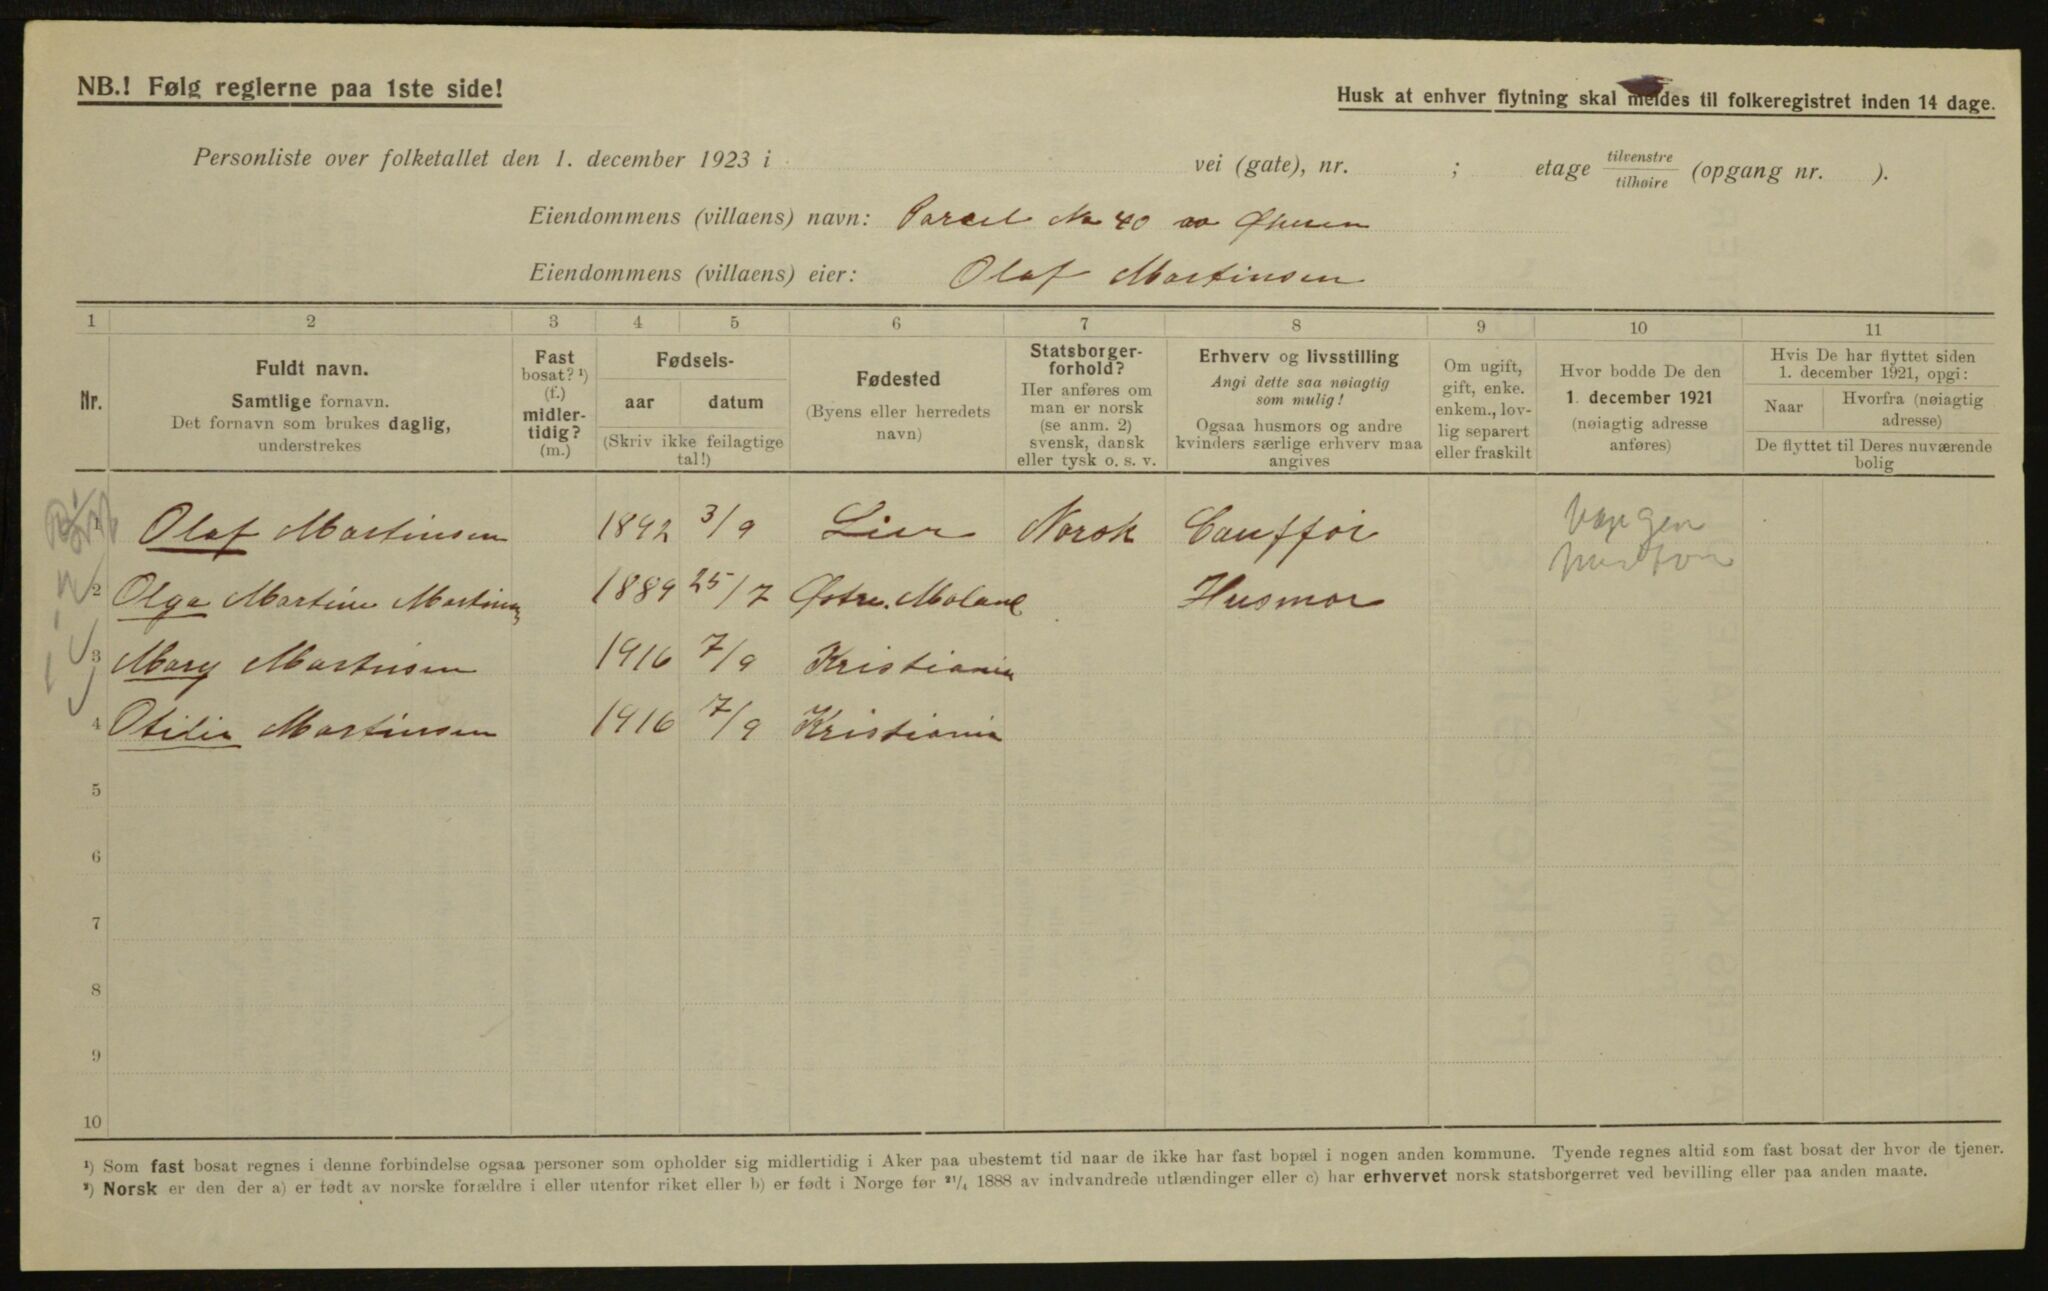 NB.! Følg reglerne paa 1ste side!
Husk at enhver flytning skal meldes til folkeregistret inden 14 dage.
Personliste over folketallet den 1. december 1923 i vei (gate), nr. ; etage tilvenstre tilhøire (opgang nr. ).
Eiendommens (villaens) navn: Parcel No 40
Eiendommens (villaens) eier: Olaf Martinsen
1 2 3 4 5 6 7 8 9 10 11
Nr.
Fuldt navn.
Samtlige fornavn.
Det fornavn som brukes daglig,
understrekes
Fast
bosat? ¹)
(f.)
midler-
tidig?
(m.)
Fødsels-
aar datum
(Skriv ikke feilagtige
tal!)
Fødested
(Byens eller herredets
navn)
Statsborger-
forhold?
Her anføres om
man er norsk
(se anm. 2)
svensk, dansk
eller tysk o. s. v.
Erhverv og livsstilling
Angi dette saa nøiagtig
som mulig!
Ogsaa husmors og andre
kvinders særlige erhverv maa
angives
Om ugift,
gift, enke.
enkem., lov-
lig separert
eller fraskilt
Hvor bodde De den
1. december 1921
(nøiagtig adresse
anføres)
Hvis De har flyttet siden
1. december 1921, opgi:
Naar
Hvorfra (nøiagtig
adresse)
De flyttet til Deres nuværende
bolig
1 Olaf Martinsen 1892 3/9 Lier Norsk Cauffør
2 Olga Martine Martinsen 1889 25/7 Østre Husmor
3 Mary Martinsen 1916 7/9 Kristiania
4 Otidia Martinsen 1916 7/9 Kristiania
5
6
7
8
9
10
¹) Som fast bosat regnes i denne forbindelse ogsaa personer som opholder sig midlertidig i Aker paa ubestemt tid naar de ikke har fast bopæl i nogen anden kommune. Tyende regnes altid som fast bosat der hvor de tjener.
²) Norsk er den der a) er født av norske forældre i eller utenfor riket eller b) er født i Norge før ²¹/₄ 1888 av indvandrede utlændinger eller c) har erhvervet norsk statsborgerret ved bevilling eller paa anden maate.